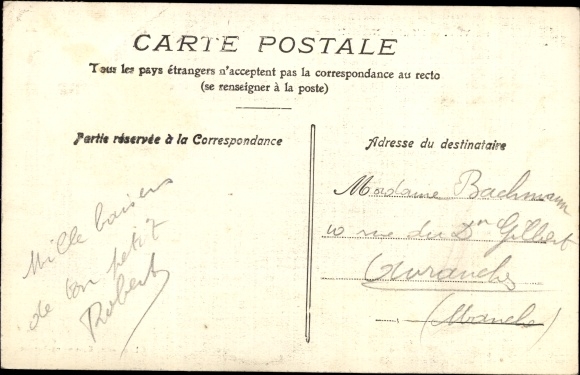 CARTE POSTALE
Tous les pays étrangers n'acceptent pas la correspondance au recto
(se renseigner à la poste)
Partie réservée à la Correspondance
Mille baisers
de ton petit
Robert
Adresse du destinataire
Madame Bachmann
10 rue du Dr Gilbert
Avranches
(Manche)